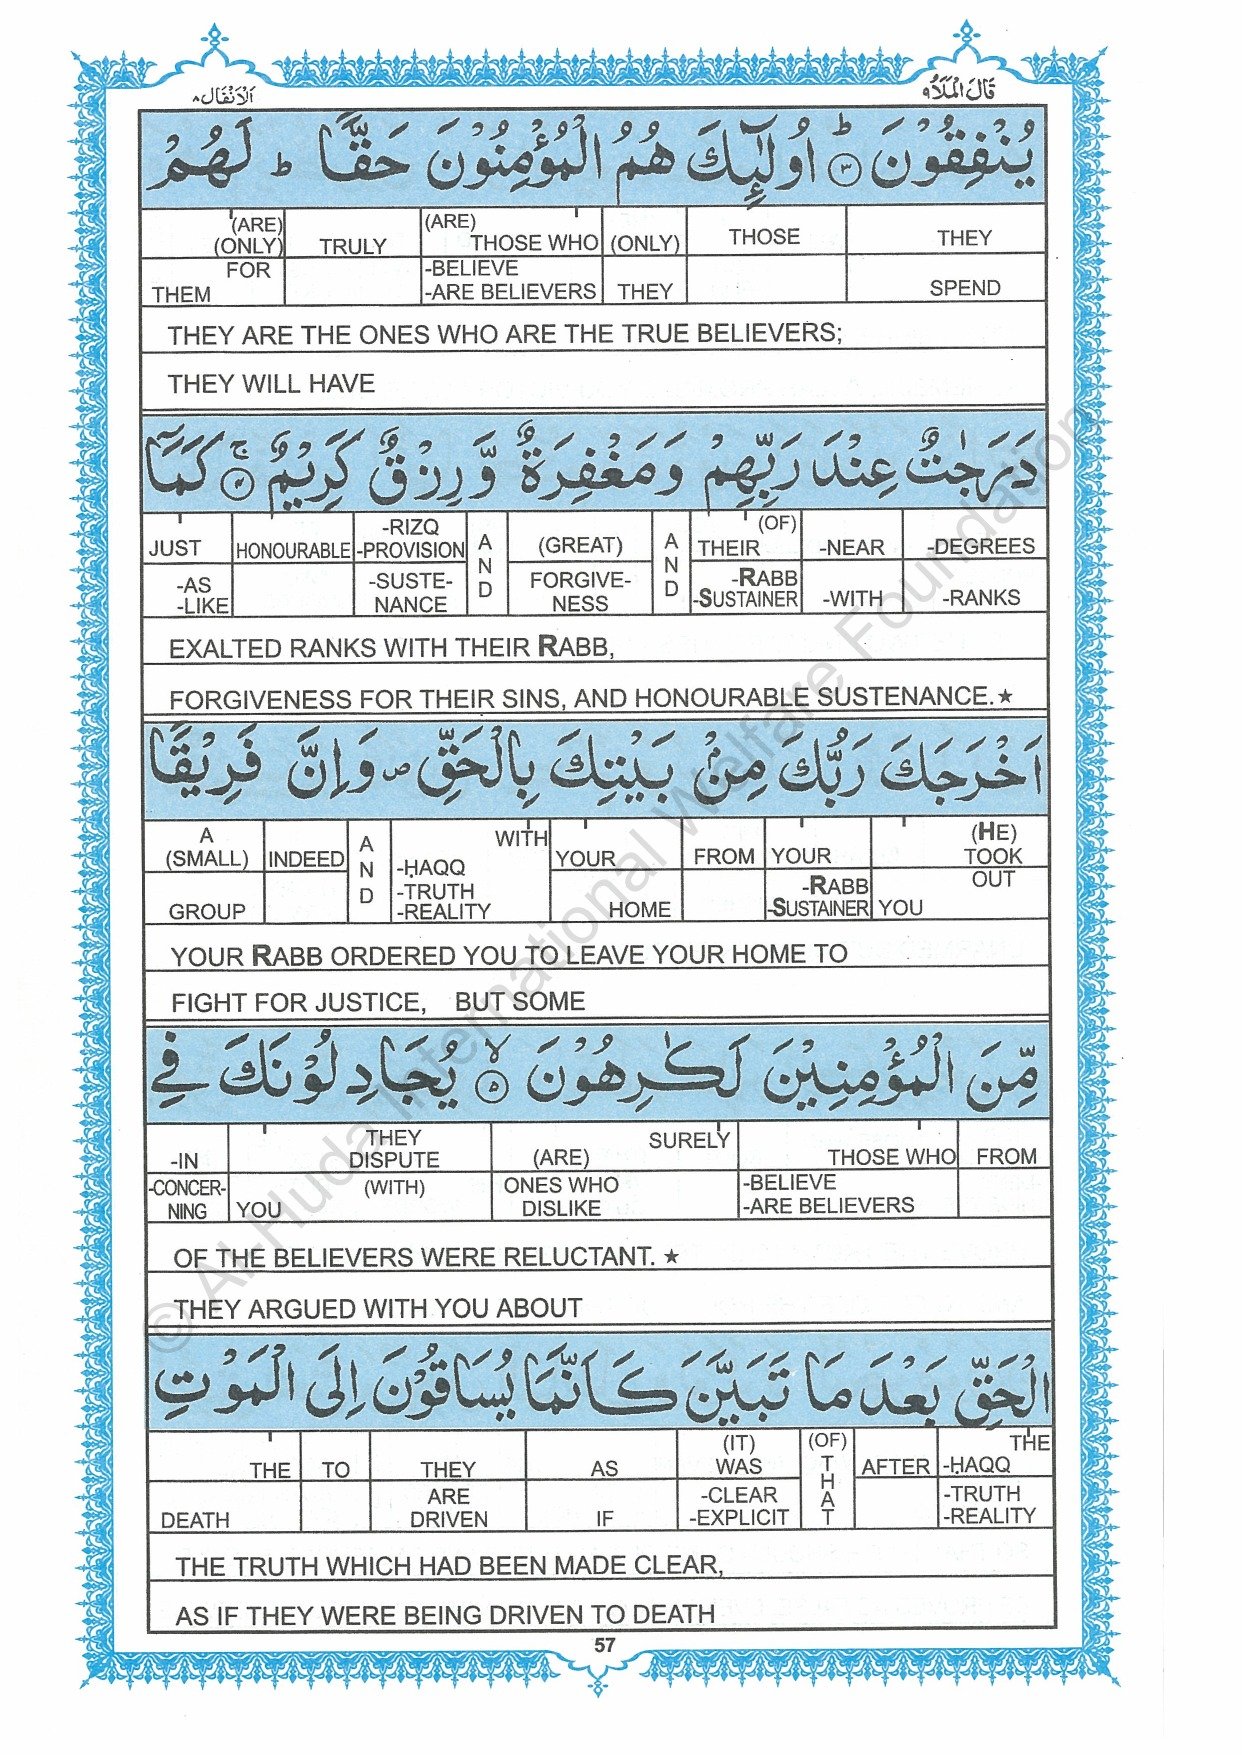 الانفال ٨
قال الملا ٩
يُنْفِقُوْنَ ؕ ﴿٣﴾ اُولٰٓئِكَ هُمُ الْمُؤْمِنُوْنَ حَقًّا ؕ لَهُمْ
(ARE) (ONLY) TRULY (ARE) THOSE WHO (ONLY) THOSE THEY
FOR THEM -BELIEVE -ARE BELIEVERS THEY SPEND
THEY ARE THE ONES WHO ARE THE TRUE BELIEVERS;
THEY WILL HAVE
دَرَجٰتٌ عِنْدَ رَبِّهِمْ وَمَغْفِرَةٌ وَّرِزْقٌ كَرِيْمٌ ۚ ﴿٤﴾ كَمَاۤ
JUST HONOURABLE -RIZQ -PROVISION AND (GREAT) AND (OF) THEIR -NEAR -DEGREES
-AS -LIKE -SUSTE- NANCE FORGIVE- NESS -RABB -SUSTAINER -WITH -RANKS
EXALTED RANKS WITH THEIR RABB,
FORGIVENESS FOR THEIR SINS, AND HONOURABLE SUSTENANCE.★
اَخْرَجَكَ رَبُّكَ مِنْۢ بَيْتِكَ بِالْحَقِّ ۪ وَاِنَّ فَرِيْقًا
A (SMALL) INDEED AND WITH YOUR FROM YOUR (HE) TOOK
GROUP -ḤAQQ -TRUTH -REALITY HOME -RABB -SUSTAINER OUT YOU
YOUR RABB ORDERED YOU TO LEAVE YOUR HOME TO
FIGHT FOR JUSTICE, BUT SOME
مِّنَ الْمُؤْمِنِيْنَ لَكٰرِهُوْنَ ۙ ﴿٥﴾ يُجَادِلُوْنَكَ فِي
-IN THEY DISPUTE SURELY (ARE) THOSE WHO FROM
-CONCER- NING YOU (WITH) ONES WHO DISLIKE -BELIEVE -ARE BELIEVERS
OF THE BELIEVERS WERE RELUCTANT. ★
THEY ARGUED WITH YOU ABOUT
الْحَقِّ بَعْدَ مَا تَبَيَّنَ كَاَنَّمَا يُسَاقُوْنَ اِلَى الْمَوْتِ
THE TO THEY AS (IT) WAS (OF) THAT AFTER THE -ḤAQQ
DEATH ARE DRIVEN IF -CLEAR -EXPLICIT -TRUTH -REALITY
THE TRUTH WHICH HAD BEEN MADE CLEAR,
AS IF THEY WERE BEING DRIVEN TO DEATH
57
© Al-Huda International Welfare Foundation